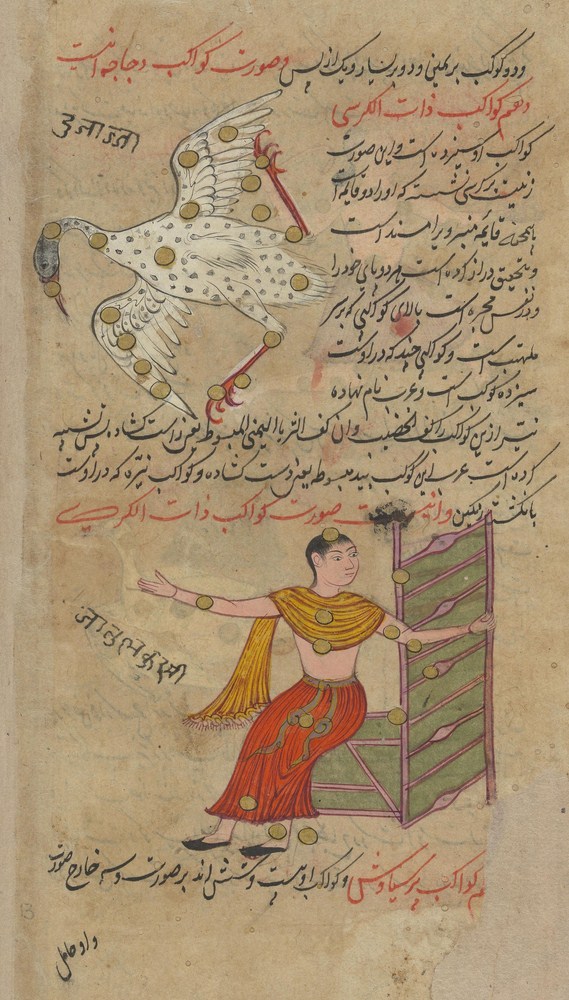 و دو کوکب بر یمینی و دو بر یسار و یک از پس و صورت کواکب دجاجه اینست
दुजाज्जा
دهم کواکب ذات الکرسی
کواکب او سیزده است و این صورت
زنیست بر کرسی نشسته که او را دو قائمه است
همچو قائمه منبر و برا مسند است
و بتحقیق دراز کرده است هر دو پای خود را
و در نفس مجره است بالای کواکبی که بر سر
ملتهب است و کواکبی چند که در اوست
سیزده کوکب است و عرب نام نهاده
نیر ازین کواکب را کف الخضیب و ان کف الثریا الیمنی المبسوطه یعنی دست کشاده پس تشبیه
کرده است عرب این کوکب بید مبسوطه یعنی دست کشاده و کواکب نیره که در اوست
بانگشت رنگین و اینست صورت کواکب ذات الکرسی
जातुलकुरसी
کواکب برسیاوش و کواکب او بیست و شش اند بر صورت و سه خارج صورت